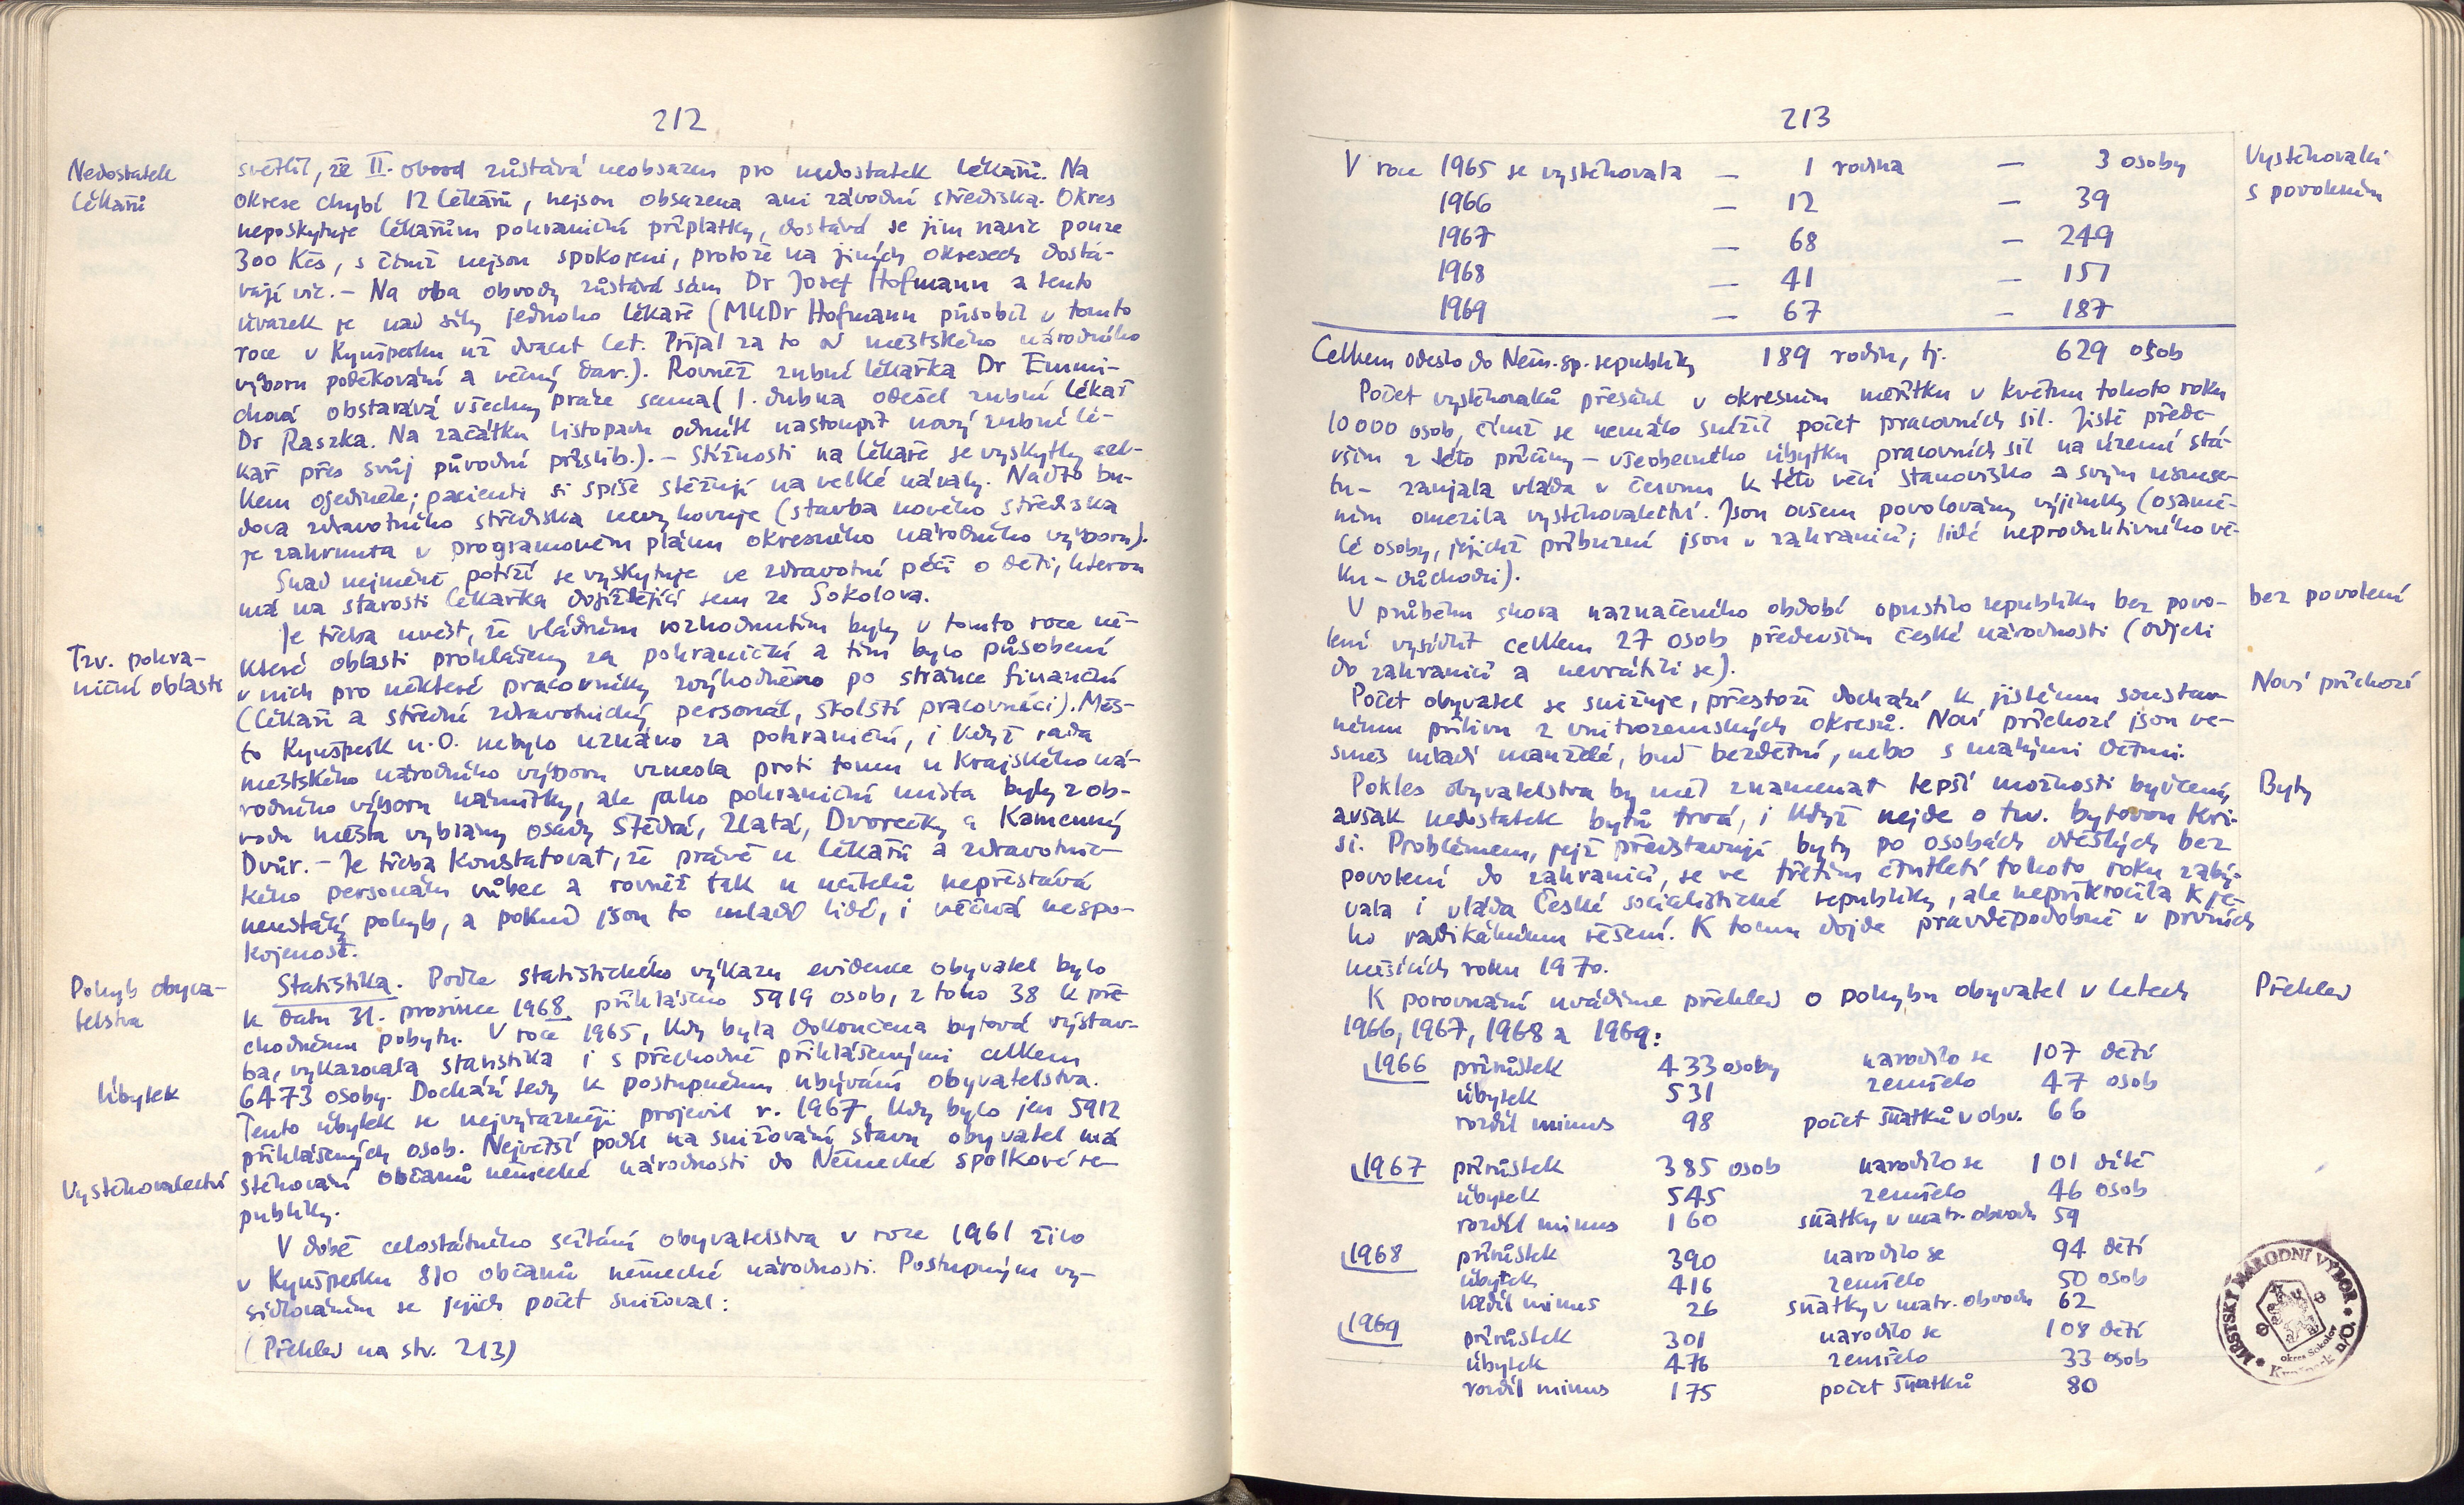 212
Nedostatek
lékařů
světlil, že II. obvod zůstává neobsazen pro nedostatek lékařů. Na
okrese chybí 12 lékařů, nejsou obsazena ani závodní střediska. Okres
neposkytuje lékařům pohraniční příplatky, dostává se jim navíc pouze
300 Kčs, s čímž nejsou spokojeni, protože na jiných okresech dostá-
vají víc. – Na oba obvody zůstává sám Dr Josef Hofmann a tento
úvazek je nad síly jednoho lékaře (MUDr Hofmann působil v tomto
roce v Kynšperku už dvacet let. Přijal za to od městského národního
výboru poděkování a věcný dar.). Rovněž zubní lékařka Dr Emmi-
chová obstarává všechny práce sama (1. dubna odešel zubní lékař
Dr Raszka. Na začátku listopadu odmítl nastoupit nový zubní lé-
kař přes svůj původní příslib.). – Stížnosti na lékaře se vyskytly cel-
kem ojediněle; pacienti si spíše stěžují na velké návaly. Nadto bu-
dova zdravotního střediska nevyhovuje (stavba nového střediska
je zahrnuta v programovém plánu okresního národního výboru).
Snad nejméně potíží se vyskytuje ve zdravotní péči o děti, kterou
má na starosti lékařka dojíždějící sem ze Sokolova.
Tzv. pohra-
niční oblasti
Je třeba uvést, že vládním rozhodnutím byly v tomto roce ně-
které oblasti prohlášeny za pohraniční a tím bylo působení
v nich pro některé pracovníky zvýhodněno po stránce finanční
(lékaři a střední zdravotnický personál, školští pracovníci). Měs-
to Kynšperk n.O. nebylo uznáno za pohraniční, i když rada
městského národního výboru vznesla proti tomu u Krajského ná-
rodního výboru námitky, ale jako pohraniční místa byly z ob-
vodu města vybrány osady Štědrá, Zlatá, Dvorečky a Kamenný
Dvůr. – Je třeba konstatovat, že právě u lékařů a zdravotnic-
kého personálu vůbec a rovněž tak u učitelů nepřestává
neustálý pohyb, a pokud jsou to mladí lidé, i věčná nespo-
kojenost.
Pohyb obyva-
telstva
Statistika. Podle statistického výkazu evidence obyvatel bylo
k datu 31. prosince 1968 přihlášeno 5919 osob, z toho 38 k pře-
chodnému pobytu. V roce 1965, kdy byla dokončena bytová výstav-
ba, vykazovala statistika i s přechodně přihlášenými celkem
Úbytek
6473 osoby. Dochází tedy k postupnému ubývání obyvatelstva.
Tento úbytek se nejvýrazněji projevil r. 1967, kdy bylo jen 5912
přihlášených osob. Největší podíl na snižování stavu obyvatel má
Vystěhovalectví
stěhování občanů německé národnosti do Německé spolkové re-
publiky.
V době celostátního sčítání obyvatelstva v roce 1961 žilo
v Kynšperku 810 občanů německé národnosti. Postupným vy-
sídlováním se jejich počet snižoval:
(Přehled na str. 213)
213
Vystěhovalci
s povolením
V roce 1965 se vystěhovala – 1 rodina – 3 osoby
1966 – 12 – 39
1967 – 68 – 249
1968 – 41 – 151
1969 – 67 – 187
Celkem odešlo do Něm. sp. republiky 189 rodin, tj. 629 osob
Počet vystěhovalců přesáhl v okresním měřítku v květnu tohoto roku
10 000 osob, čímž se nemálo snížil počet pracovních sil. Jistě přede-
vším z této příčiny – všeobecného úbytku pracovních sil na území stá-
tu – zaujala vláda v červnu k této věci stanovisko a svým usnese-
ním omezila vystěhovalectví. Jsou ovšem povolovány výjimky (osamě-
lé osoby, jejichž příbuzní jsou v zahraničí; lidé neproduktivního vě-
ku – důchodci).
bez povolení
V průběhu shora naznačeného období opustilo republiku bez povo-
lení vysídlit celkem 27 osob především české národnosti (odjeli
do zahraničí a nevrátili se).
Noví příchozí
Počet obyvatel se snižuje, přestože dochází k jistému soustav-
nému přílivu z vnitrozemských okresů. Noví příchozí jsou ve-
směs mladí manželé, buď bezdětní, nebo s malými dětmi.
Byty
Pokles obyvatelstva by měl znamenat lepší možnosti bydlení,
avšak nedostatek bytů trvá, i když nejde o tzv. bytovou kri-
si. Problémem, jejž představují byty po osobách odešlých bez
povolení do zahraničí, se ve třetím čtvrtletí tohoto roku zabý-
vala i vláda České socialistické republiky, ale nepřikročila k je-
ho radikálnímu řešení. K tomu dojde pravděpodobně v prvních
měsících roku 1970.
Přehled
K porovnání uvádíme přehled o pohybu obyvatel v letech
1966, 1967, 1968 a 1969:
1966 přírůstek 433 osoby narodilo se 107 dětí
úbytek 531 zemřelo 47 osob
rozdíl minus 98 počet sňatků v obv. 66
1967 přírůstek 385 osob narodilo se 101 dítě
úbytek 545 zemřelo 46 osob
rozdíl minus 160 sňatky v matr. obvodu 59
1968 přírůstek 390 narodilo se 94 dětí
úbytek 416 zemřelo 50 osob
rozdíl minus 26 sňatky v matr. obvodu 62
1969 přírůstek 301 narodilo se 108 dětí
úbytek 476 zemřelo 33 osob
rozdíl minus 175 počet sňatků 80
MĚSTSKÝ NÁRODNÍ VÝBOR
Kynšperk n/O.
okres Sokolov